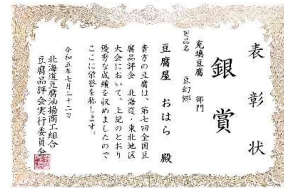 表彰状
銀賞
充填豆腐 部門
商品名 豆幻郷
豆腐屋 おはら 殿
貴方の豆腐は、第七回全国豆
腐品評会 北海道・東北地区
大会において、上記のとおり
優秀な成績を収めましたので
ここに栄誉を称します。
令和五年七月二十二日
北海道豆腐油揚商工組合
豆腐品評会実行委員会